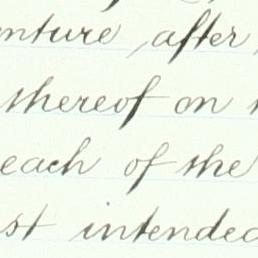 nture, after
thereof on
each of the
st intended